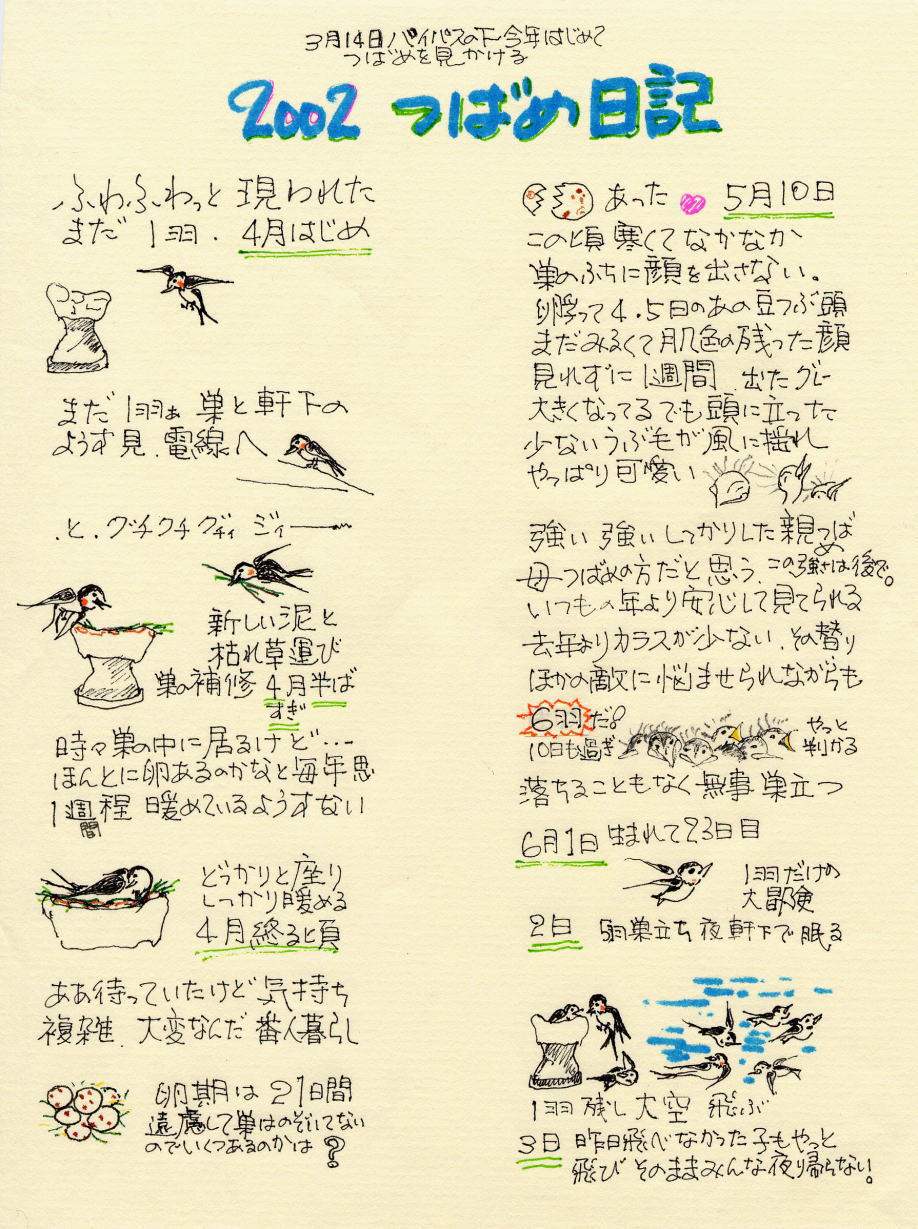 3月14日バイパスの下今年はじめて
つばめを見かける
2002 つばめ日記
ふわふわっと 現われた
まだ 1羽. 4月はじめ
まだ 1羽 巣と軒下の
ようす見、電線へ
.と.グチクチグチィ ジィー
新しい泥と
枯れ草運び
巣の補修 4月半ば
すぎ
時々巣の中に居るけど…
ほんとに卵あるのかなと毎年思
1週間程 暖めているようすない
どっかりと座り
しっかり暖める
4月終ると頃
ああ待っていたけど 気持ち
複雑. 大変なんだ 番人暮らし
卵期は 21日間
遠慮して巣はのぞいてない
のでいくつあるのかは?
あった 5月10日
この頃 寒くて なかなか
巣のふちに顔を出さない。
卵孵って4.5日のあの豆つぶ頭
まだみるくて肌色の残った顔
見れずに 1週間 出たグレー
大きくなってる でも頭に立った
少ないうぶ毛が風に揺れ
やっぱり可愛い
強い 強い しっかりした親つばめ
母つばめの方だと思う.この強さは後で。
いつもの年より安心して見てられる
去年よりカラスが少ない.その替り
ほかの敵に悩ませられながらも
6羽だ!
10日も過ぎ
やっと
判かる
落ちることもなく 無事 巣立つ
6月1日 生まれて23日目
1羽だけの
大冒険
2日 5羽巣立ち 夜 軒下で眠る
1羽残し 大空 飛ぶ
3日 昨日飛べなかった子もやっと
飛び そのままみんな夜帰らない!